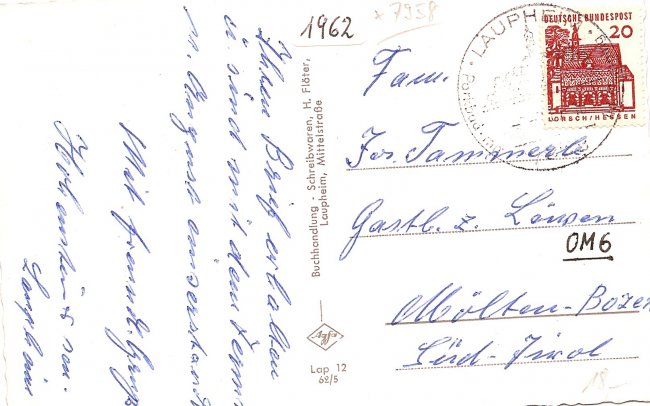 Ihren Brief erhalten
u. sind mit dem Termin
August einverstanden
Mit freundl. Grüß
1962
*7958
Buchhandlung - Schreibwaren, H. Flöter,
Laupheim, Mittelstraße
Agfa
Lap 12
62/5
LAUPHEIM
DEUTSCHE BUNDESPOST
20
LORSCH/HESSEN
Fam.
Jos. Tammerle
Gastb. z. Löwen
OM6
Mölten-Bozen
Süd-Tirol
18-